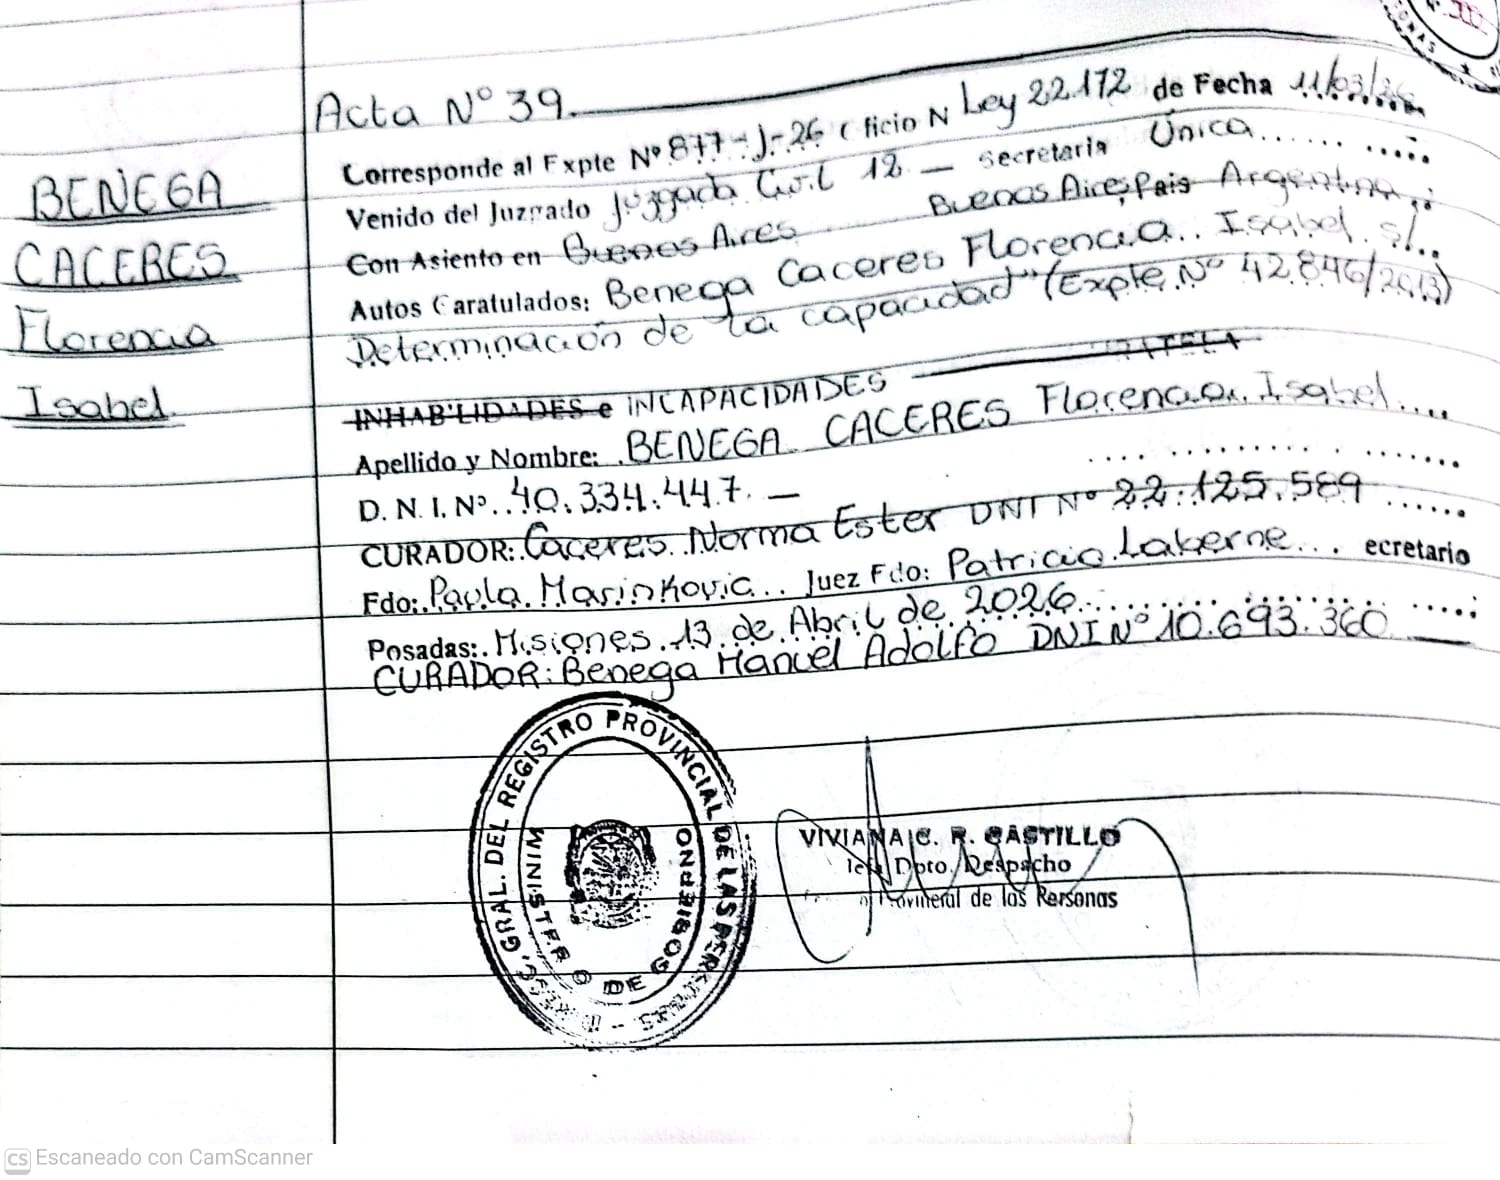 BENEGA
CACERES
Florencia
Isabel
Acta N° 39.
Corresponde al Expte Nº 877-J-26 ( ficio N Ley 22.172 de Fecha 11/03/26
Venido del Juzgado Juzgado Civil 12 — Secretaria Única
Con Asiento en Buenos Aires Buenos Aires Pais Argentina
Autos Caratulados: Benega Caceres Florencia Isabel s/
Determinación de la capacidad" (Expte Nº 42.846/2013)
INHAB'LIDADES e INCAPACIDADES
Apellido y Nombre: BENEGA CACERES Florencia Isabel
D. N. I. Nº 40.334.447. —
CURADOR: Caceres Norma Ester DNI Nº 22.125.589
Fdo: Paula Marinkovic Juez Fdo: Patricio Laberne ecretario
Posadas: Misiones 13 de Abril de 2026
CURADOR: Benega Manuel Adolfo DNI Nº 10.693.360 —
GRAL. DEL REGISTRO PROVINCIAL DE LAS PERSONAS
MINISTERIO DE GOBIERNO
VIVIANA C. R. CASTILLO
Jefe Dpto. Despacho
Provincial de las Personas
CS Escaneado con CamScanner